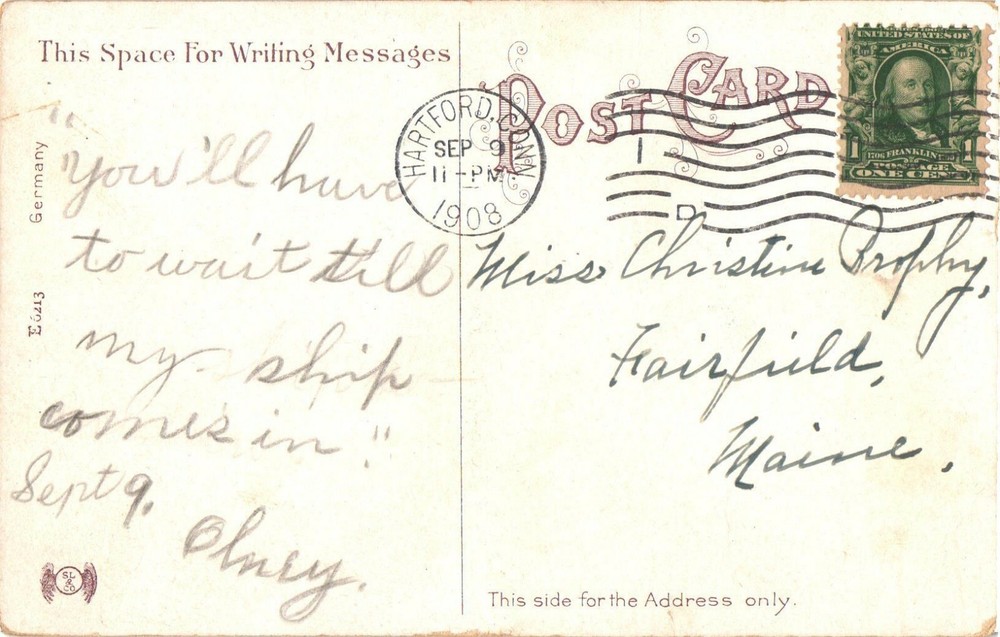 This Space For Writing Messages
POST CARD
UNITED STATES OF
AMERICA
1 1
1706 FRANKLIN
POSTAGE
ONE CENT
HARTFORD, CONN
SEP 9
11-PM
1908
1
D
"you'll have
to wait till
my ship
comes in"
Sept 9.
Olney.
Miss Christine Brophy,
Fairfield,
Maine.
Germany
E 6213
S.L
&
CO
This side for the Address only.